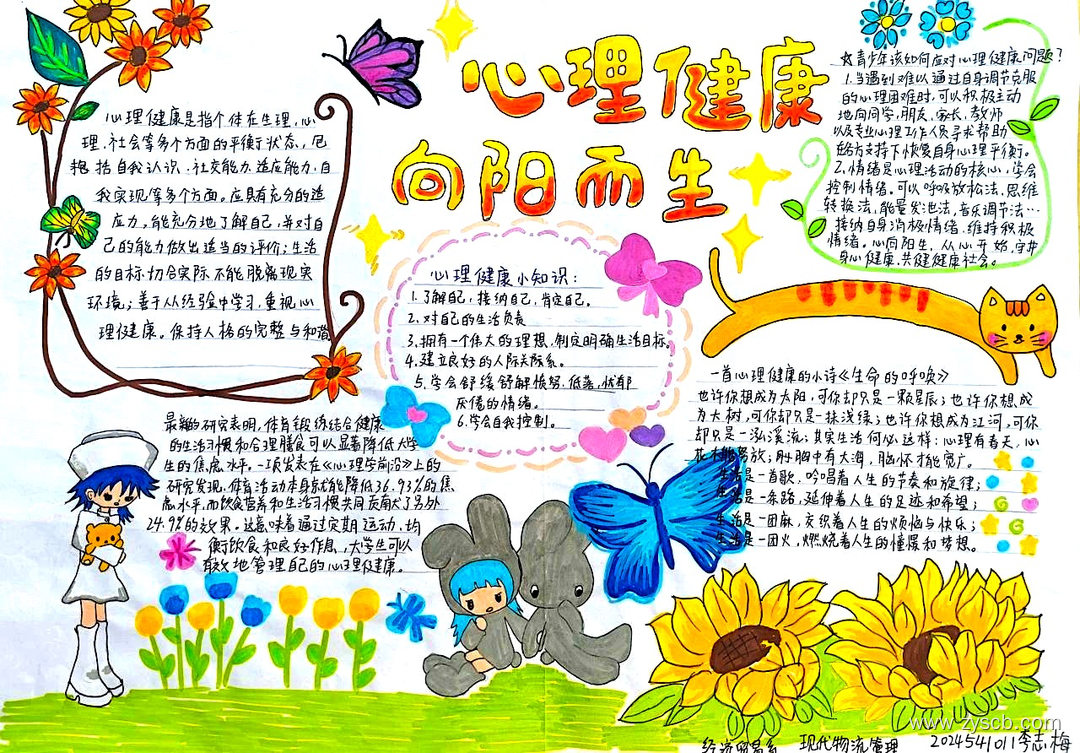 心理健康
向阳而生
心理健康是指个体在生理、心
理、社会等多个方面的平衡状态，包
括自我认识、社交能力、适应能力、自
我实现等多个方面。应具有充分的适
应力，能充分地了解自己，并对自
己的能力做出适当的评价；生活
的目标切合实际，不能脱离现实
环境；善于从经验中学习，重视心
理健康。保持人格的完整与和谐
☆青少年该如何应对心理健康问题？
1.当遇到难以通过自身调节克服
的心理困难时，可以积极主动
地向同学，朋友，家长，教师
以及专业心理工作人员寻求帮助
在给方支持下恢复自身心理平衡。
2.情绪是心理活动的核心，学会
控制情绪。可以呼吸放松法，思维
转换法，能量发泄法，音乐调节法…
接纳自身消极情绪，维持积极
情绪。心向阳生，从心开始，守护
身心健康，共健健康社会。
心理健康小知识：
1.了解自己，接纳自己，肯定自己。
2.对自己的生活负责
3.拥有一个伟大的理想，制定明确生活目标。
4.建立良好的人际关际系。
5.学会舒缓舒解愤怒，低落，忧郁
厌倦的情绪。
6.学会自我控制。
一首心理健康的小诗《生命的呼唤》
也许你想成为太阳，可你却只是一颗星辰；也许你想成
为大树，可你却只是一抹浅绿；也许你想成为江河，可你
却只是一泓溪流；其实生活何必这样：心理有春天，心
花才能努放；胸中有大海，胸怀才能宽广。
生活是一首歌，吟唱着人生的节奏和旋律；
生活是一条路，延伸着人生的足迹和希望；
生活是一团麻，交织着人生的烦恼与快乐；
生活是一团火，燃烧着人生的憧憬和梦想。
最新的研究表明，体育锻炼结合健康
的生活习惯和合理膳食可以显著降低大学
生的焦虑水平。一项发表在《心理学前沿》上的
研究发现，体育活动本身就能降低36.93%的焦
虑水平，而饮食营养和生活习惯共同贡献了另外
24.9%的效果，这意味着通过定期运动、均
衡饮食和良好作息，大学生可以
有效地管理自己的心理健康。
www.zyscb.com
经济贸易系 现代物流管理 2024541011李志梅